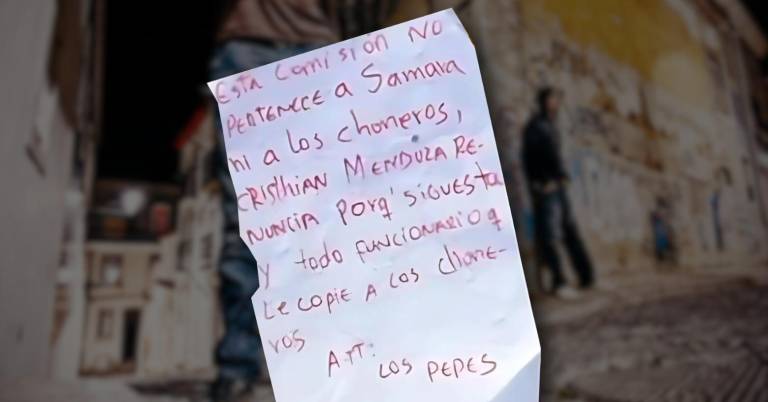 Esta comisión NO
PERTENECE a Samara
ni a los choneros,
CRISTHIAN MENDOZA RE-
NUNCIA PORQ' SIGUES tu
y todo FUNCIONARIO q
LE COPIE A LOS CHONE-
ROS
ATT:
LOS PEPES